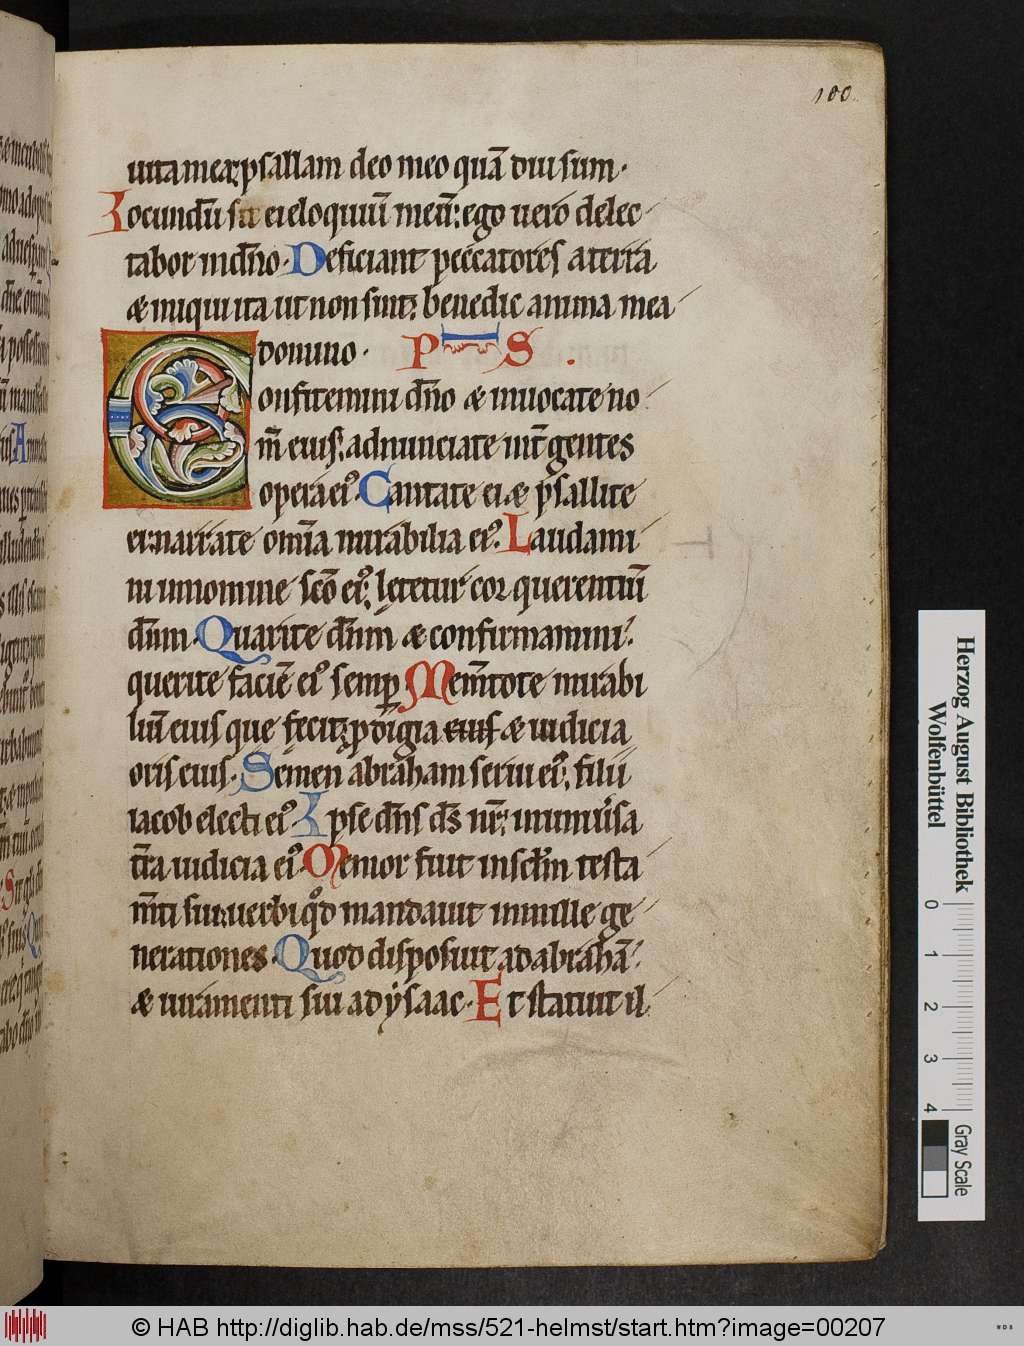 100.
uita mea: psallam deo meo quā diu sum·
Iocundū sit ei eloquiū meū: ego uero delec
tabor in dn̄o· Deficiant peccatores a terra
& iniqui ita ut non sint: benedic anima mea
domino· PS.
Confitemini dn̄o & inuocate no
m̄ eius: adnunciate int̄ gentes
opera ei᾿· Cantate ei & psallite
ei: narrate om̄ia mirabilia ei᾿· Laudami
ni in nomine sc̄o ei᾿: lętetur cor querentiū
dn̄m· Quærite dn̄m & confirmamini:
querite faciē ei᾿ semp· Mem̄tote mirabi
liū eius que fecit: p̱digia eius & iudicia
oris eius· Semen abraham serui ei᾿: filii
iacob electi ei᾿· Ipse dn̄s ds̄ nr̄: in uniūsa
t̄ra iudicia ei᾿· Memor fuit in sc̄lm testa
m̄ti sui: uerbi qd̊ mandauit in mille ge
nerationes· Quod disposuit ad abrahā:
& iuramenti sui ad ẏsaac· Et statuit il
Herzog August Bibliothek
Wolfenbüttel
0 1 2 3 4
Gray Scale
© HAB http://diglib.hab.de/mss/521-helmst/start.htm?image=00207